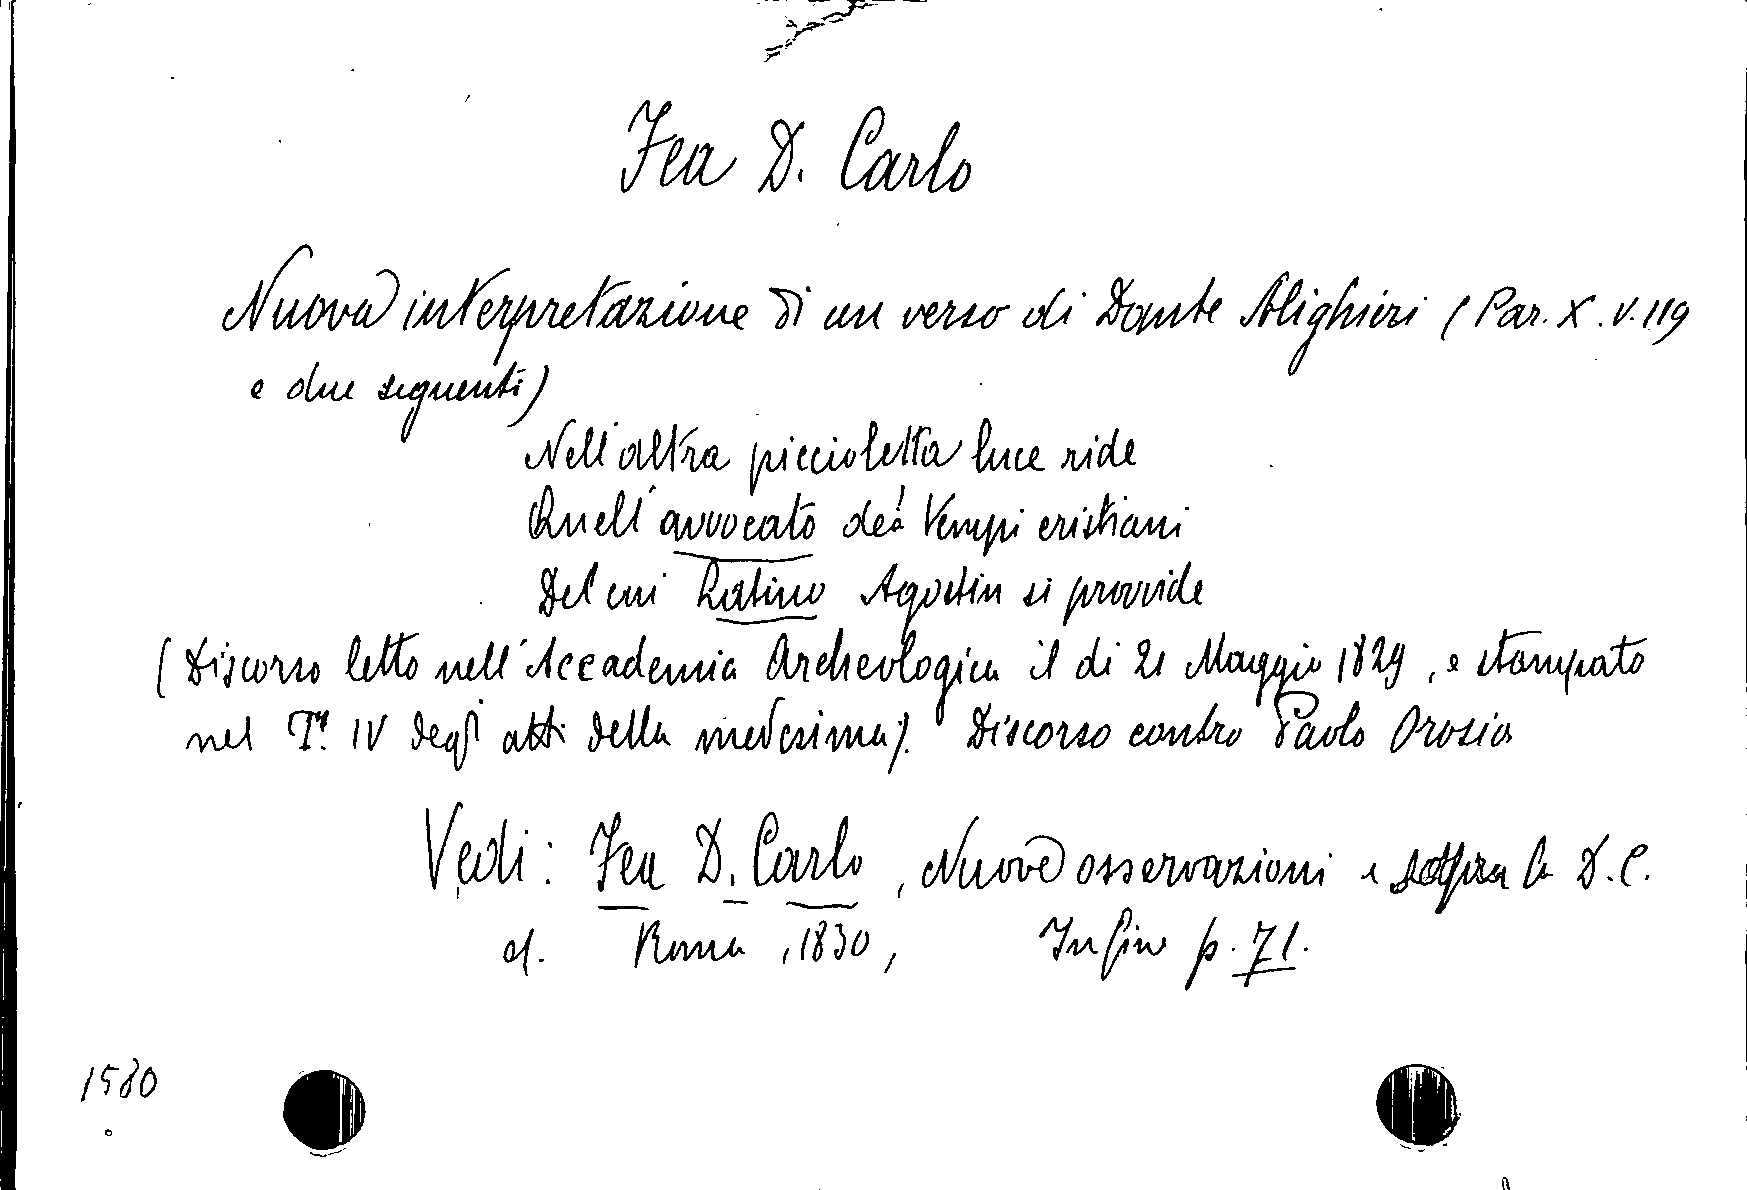 Fea D. Carlo
Nuova interpretazione di un verso di Dante Alighieri (Par. X. v. 119
e due seguenti)
Nell'altra piccioletta luce ride
Quell'avvocato de' tempi cristiani
Del cui Latino Agostin si provvide
(Discorso letto nell'Accademia Archeologica il di 21 Maggio 1829, e stampato
nel T. IV degli atti della medesima). Discorso contro Paolo Orosio
Vedi: Fea D. Carlo, Nuove osservazioni sopra la D.C.
Roma, 1830, In fine p. 71.
1580